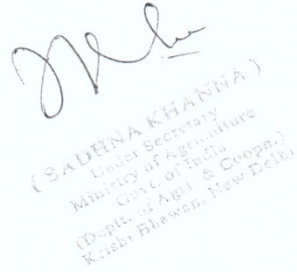 (SADHNA KHANNA)
Under Secretary
Ministry of Agriculture
Govt. of India
(Deptt. of Agri. & Coopn.)
Krishi Bhawan, New Delhi